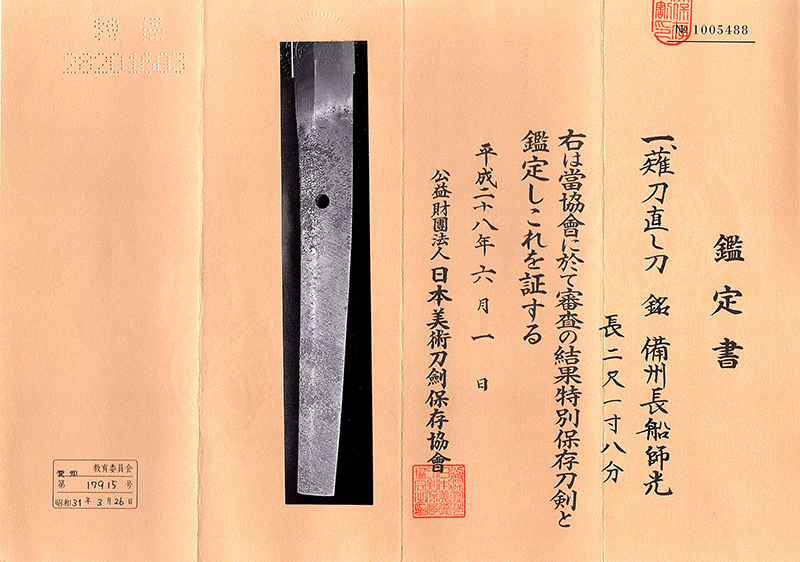 № 1005488
鑑定書
一、薙刀直し刀 銘 備州長船師光
長二尺一寸八分
右は當協會に於て審査の結果特別保存刀剣と
鑑定しこれを証する
平成二十八年六月一日
公益財團法人 日本美術刀劍保存協會
特保
28201603
愛知 教育委員会
第 17915 号
昭和31年3月26日